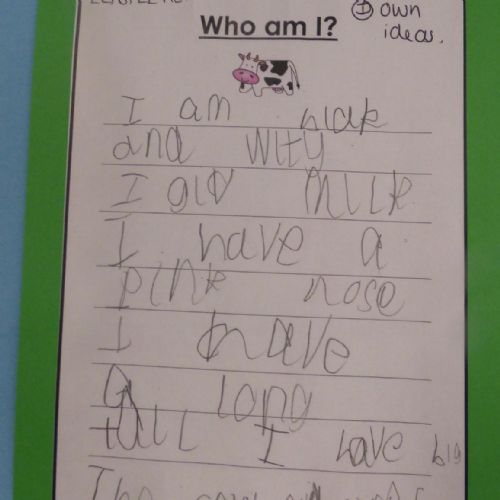 Who am I?
① own
ideas.
I am blak
and wity
I giv milk
I have a
pink nose
I have
a long
tall I have big
The